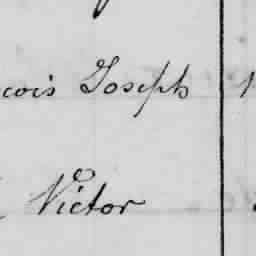 çois Joseph
Victor